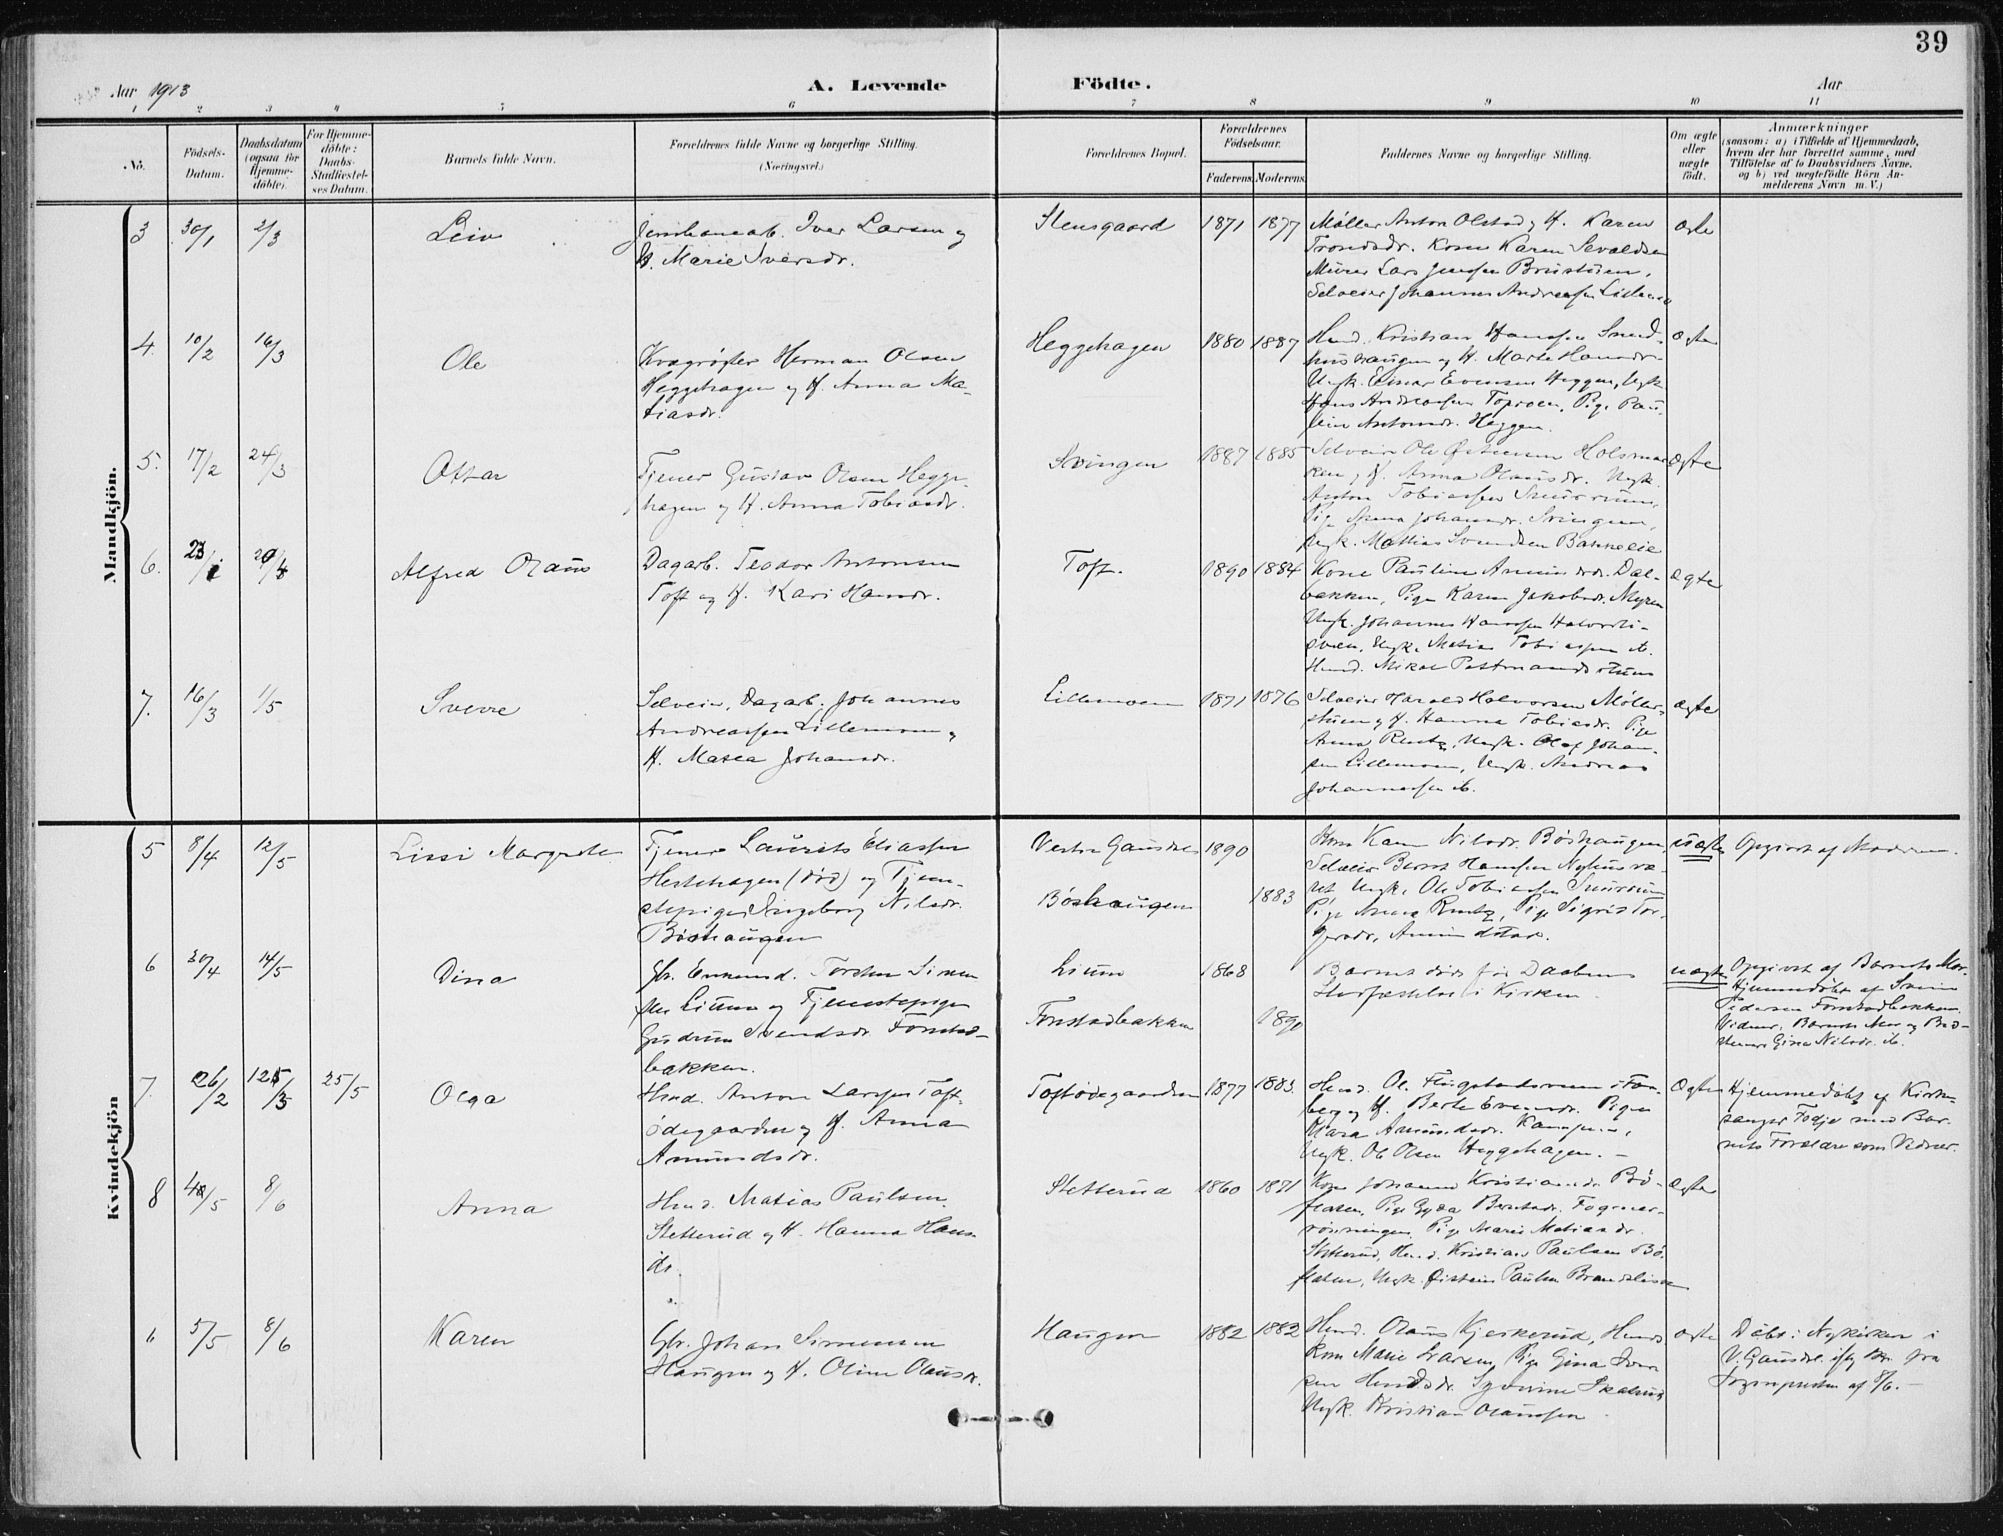 39
Aar 1913
A. Levende Födte.
Aar
1 2 3 4 5 6 7 8 9 10 11
No.
Födsels-Datum.
Daabsdatum (ogsaa for Hjemme-döbte).
For Hjemme-döbte: Daabs-Stadfæstel-ses Datum.
Barnets fulde Navn.
Forældrenes fulde Navne og borgerlige Stilling.
(Næringsvei.)
Forældrenes Bopæl.
Forældrenes Födselsaar.
Faderens. Moderens.
Faddernes Navne og borgerlige Stilling.
Om ægte eller uægte födt.
Anmærkninger
(saasom: a) i Tilfælde af Hjemmedaab, hvem der har forrettet samme, med Tilföielse af to Daabsvidners Navne, og b) ved uægtefödte Börn Anmelderens Navn m. V.)
Mandkjön.
3 30/1 2/3 Leiv
Jernbanearb. Iver Larsen og
H. Marie Iversdr.
Stensgaard 1871 1877
Møller Anton Olstad og H. Karen
Trondsdr. Kone Karen Sevaldsen
Murer Lars Jensen Brustuen,
Selveier Johannes Andreassen Lillemo
ægte
4. 10/2 16/3 Ole
Kvægrøgter Herman Olsen
Heggehagen og H. Anna Ma-
tiasdr.
Heggehagen 1880 1887
Husd. Kristian Hansen
og H. Marte Hansdr.
Ungk. Einar Evensen Heggen, Ungk
Hans Andreassen Toproen, Pige Pau-
line Antonsdr. Heggen.
ægte
5. 17/2 24/3 Ottar
Tjener Gustav Olsen Hegge-
hagen og H. Anna Tobiasdr.
Svingen 1887 1885
Selveier Ole Holsmar-
ken og H. Anna Olausdr. Ungk.
Anton Tobiassen Snurruen,
Pige Anna Johansdr. Svingen,
Ungk. Mattias Svendsen Bakkelie
ægte
6. 23/1 20/4 Alfred Olaus
Dagarb. Teodor Antonsen
Toft og H. Kari Hansdr.
Toft. 1890 1884
Kone Pauline Amundsdr. Dal-
bakken, Pige Karen Jakobsdr. Myren
Ungk. Johannes Hansen
Ungk. Matias Tobiassen ib.
Husd. Mikal
ægte
7. 16/3 1/5 Sverre
Selveier, Dagarb. Johannes
Andreassen Lillemoen og
H. Matea Johansdr.
Lillemoen 1871 1876
Selveier Harald Halvorsen Møller-
stuen og H. Hanna Tobiasdr. Pige
Anna Rentz, Ungk. Olaf Johan-
sen Lillemoen, Ungk. Andreas
Johannessen ib.
ægte
Kvindekjön
5 8/4 12/5 Lissi Margrete
Tjener Laurits Eliassen
Hestehagen (död) og Tjene-
stepige Ingeborg Nilsdr.
Böshaugen
Vestre Gausdal 1890
Böshaugen 1883
Kone Karen Nilsdr. Böshaugen,
Selveier Bernt Hansen
Ungk. Ole Tobiassen Snurruen
Pige Anna Rentz, Pige Sigrid Tor-
gersdr. Amundstad.
uægte
Opgivet af Moderen.
6 30/4 14/5 Dina
Gbr. Enkemd. Torsten Simen-
sen Lium og Tjenestepige
Gudrun Svendsdr. Fonstad-
bakken.
Lium 1868
Fonstadbakken 1890
Barnet döde för Daabens
Stadfæstelse i Kirken.
uægte
Opgivet af Barnets Mor.
Hjemmedöbt af Svend
Pedersen Fonstadbakken.
Vidner: Barnets Mor og Bed-
stemor Gina Nilsdr. ib.
7. 26/2 12/3 25/5 Olga
Husd. Anton Larsen Toft-
ödegaarden og H. Anna
Amundsdr.
Toftödegaarden 1877 1883.
Husd. Ole Flugstadsveen i For-
berg og H. Berte Evensdr. Pige
Klara Amundsdr.
Ungk. Ole Olsen Heggehagen.
ægte
Hjemmedöbt af Kirke-
sanger Fodje med Bar-
nets Forældre som Vidner.
8 4/5 8/6 Anna
Husd. Matias Paulsen
Stetterud og H. Hanna Hans-
dr.
Stetterud 1860 1871
Kone Johanne Kristiansdr. Bö-
flaten, Pige Gyda Berntsdr.
Pige Marie Matiasdr.
Stetterud, Husd. Kristian Paulsen Bö-
flaten, Ungk. Øistein Paulsen Brandslien
ægte
5/5 8/6 Karen
Gbr. Johan Simensen
Haugen og H. Oline Olausdr.
Haugen 1882 1882
Husd. Olaus Kjeskerud, Husmd.
Kone Marie Larsen, Pige Gina Iver-
sen
Ungk. Kristian Olaussen
ægte
Döbt i Nykirken i
V. Gausdal ifølge Br. fra
Sogneprsten af 8/6.